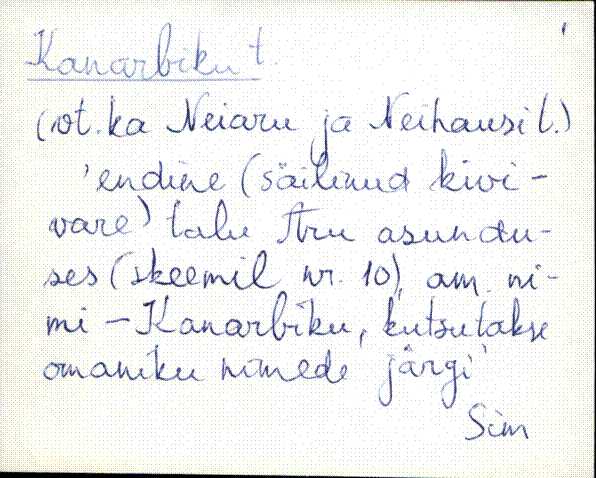 Kanarbiku t.
(vt. ka Neiaru ja Neihausi t.)
'endine (säilinud kivi-
vare) talu Aru asundu-
ses (skeemil nr. 10), am. ni-
mi - Kanarbiku, kutsutakse
omaniku nimede järgi'
Sim